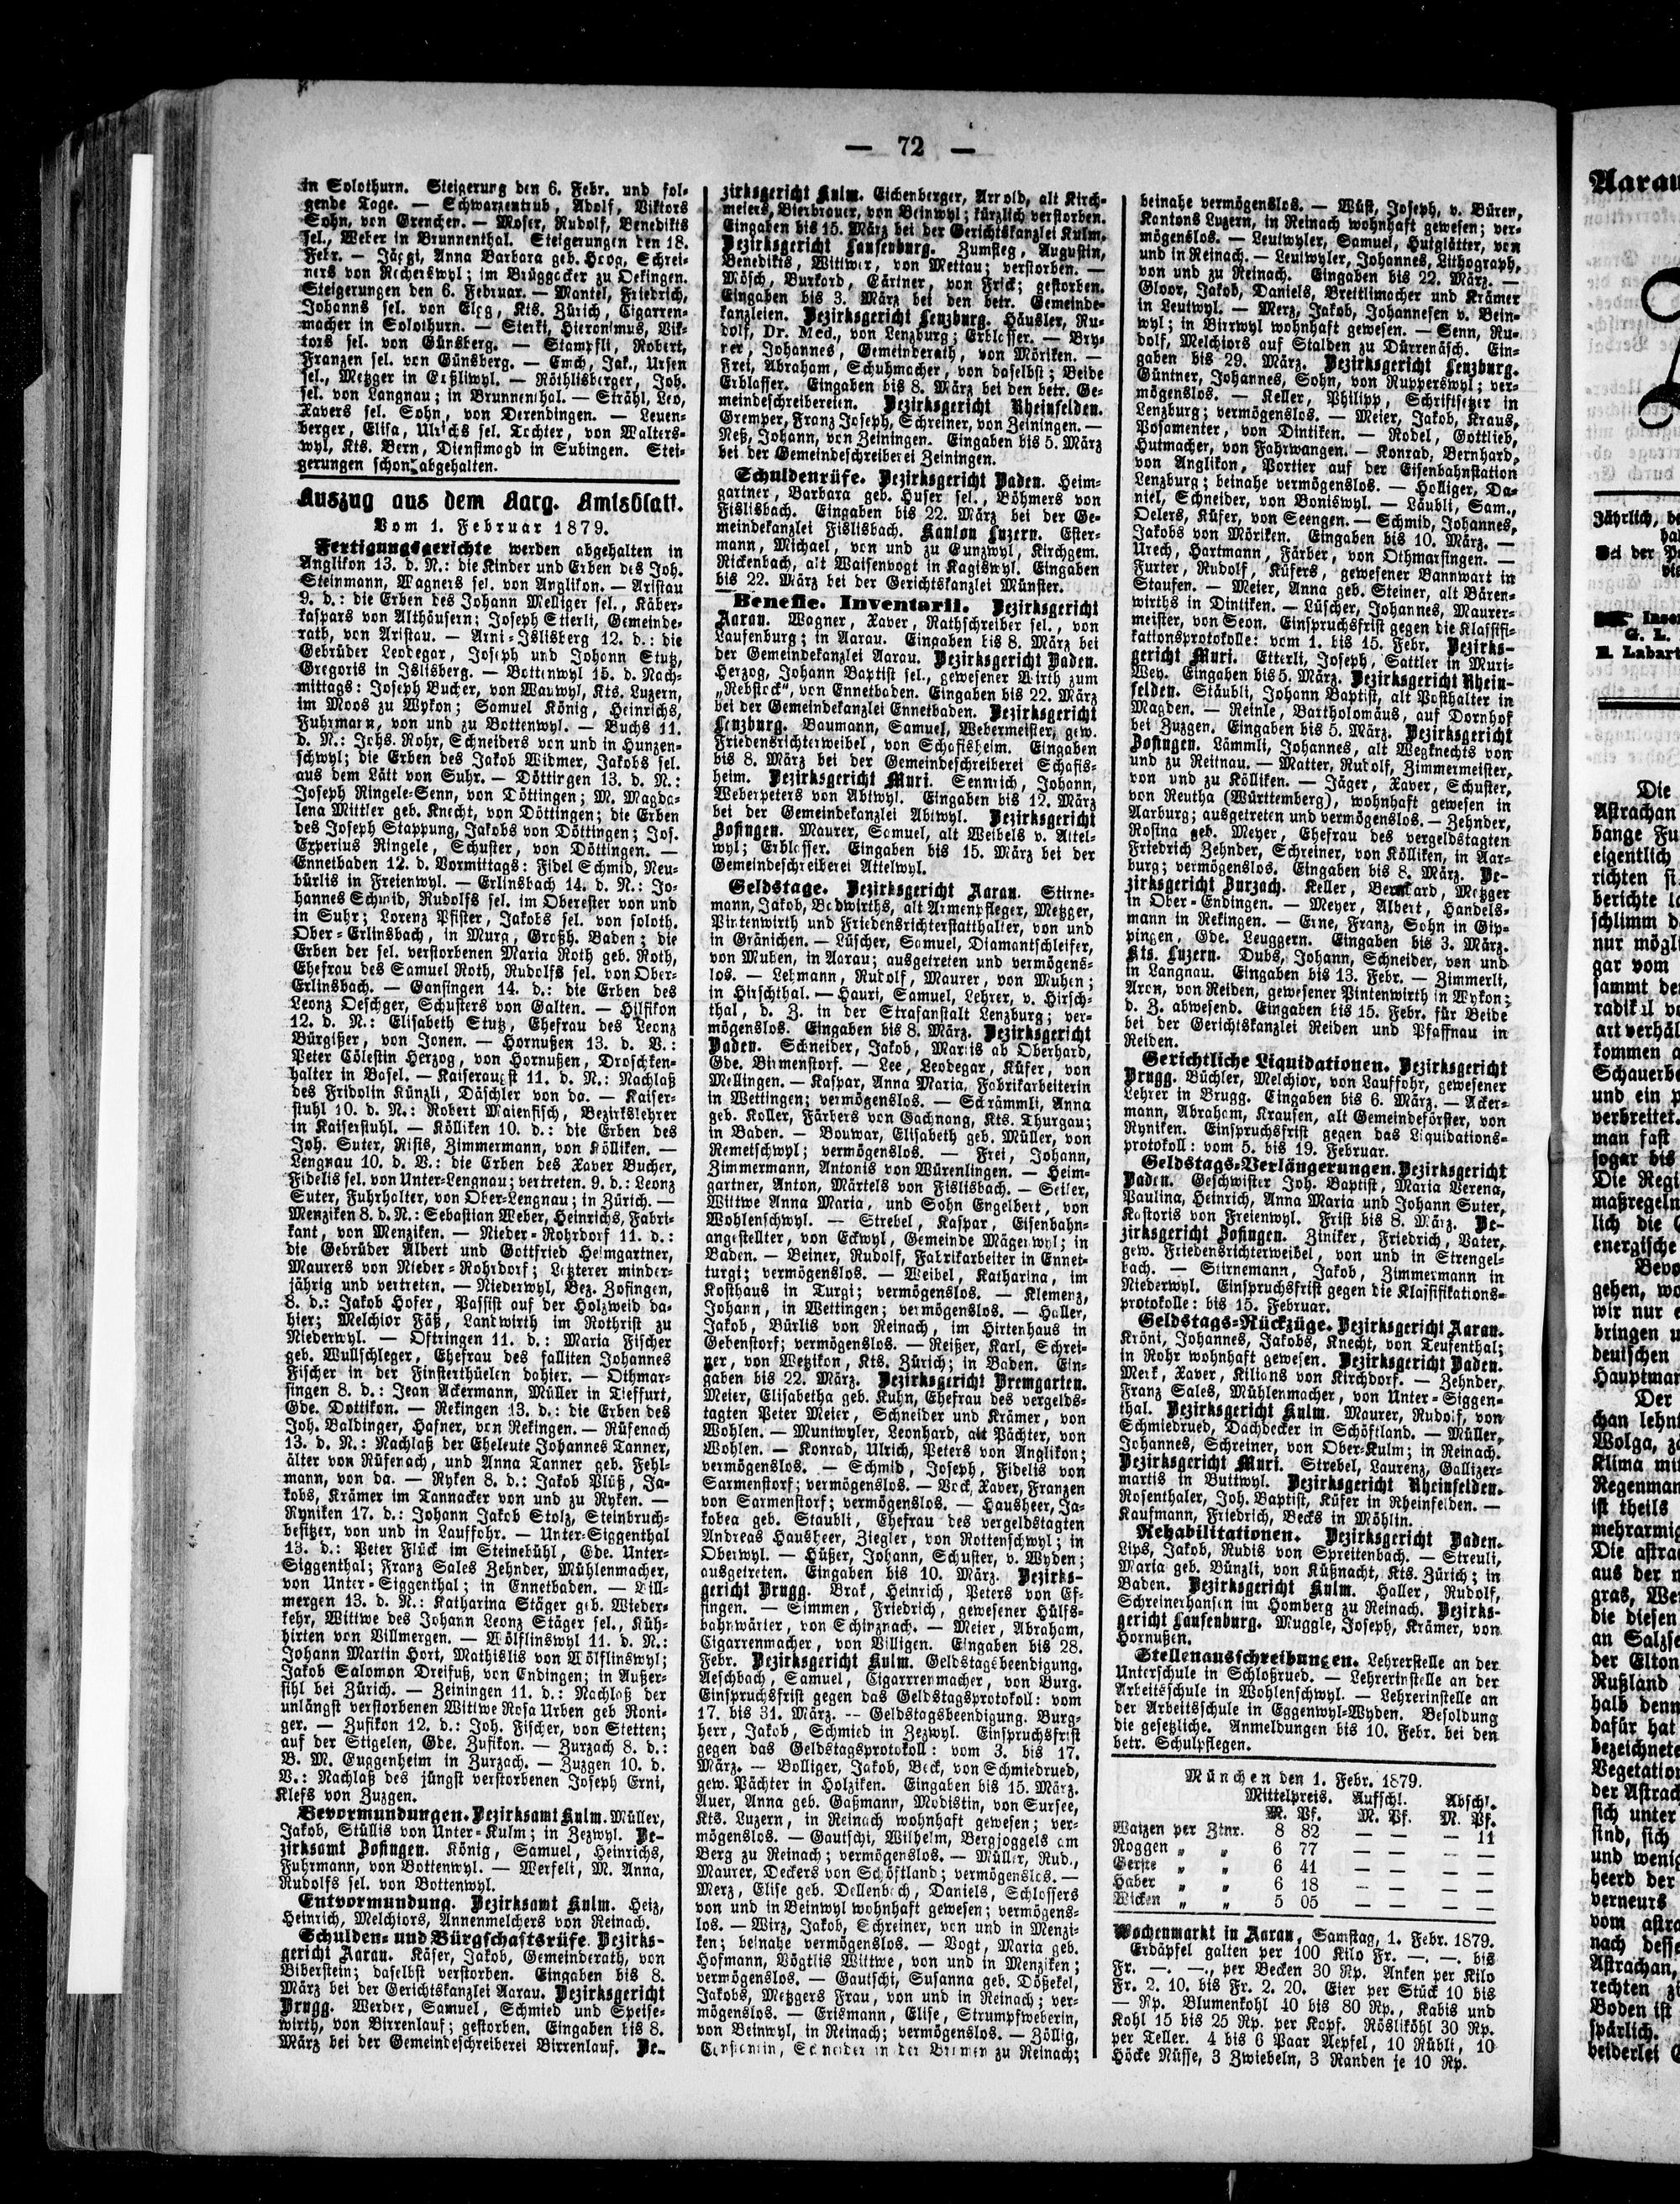 — 72 —
in Solothurn. Steigerung den 6. Febr. und fol-
gende Tage. — Schwarzentrub, Adolf, Viktors
Sohn, von Grenchen. — Moser, Rudolf, Benedikts
sel., Weber in Brunnenthal. Steigerungen den 18.
Febr. — Jäggi, Anna Barbara geb. Hoog, Schrei-
ners von Recherswyl; im Brüggacker zu Oekingen.
Steigerungen den 6. Februar. — Mantel, Friedrich,
Johanns sel. von Elgg, Kts. Zürich, Cigarren-
macher in Solothurn. — Sterki, Hieronimus, Vik-
tors sel. von Günsberg. — Stampfli, Robert,
Franzen sel. von Günsberg. — Emch, Jak., Ursen
sel., Metzger in Eßliwyl. — Röthlisberger, Joh.
sel. von Langnau; in Brunnenthal. — Strähl, Leo,
Xavers sel. Sohn, von Derendingen. — Leuen-
berger, Elisa, Ulrichs sel. Tochter, von Walters-
wyl, Kts. Bern, Dienstmagd in Subingen. Stei-
gerungen schon abgehalten.
Auszug aus dem Aarg. Amtsblatt.
Vom 1. Februar 1879.
Fertigungsgerichte werden abgehalten in
Anglikon 13. d. N.: die Kinder und Erben des Joh.
Steinmann, Wagners sel. von Anglikon. — Aristau
9. d.: die Erben des Johann Melliger sel., Käber-
kaspars von Althäusern; Joseph Stierli, Gemeinde-
rath, von Aristau. — Arni-Islisberg 12. d.: die
Gebrüder Leodegar, Joseph und Johann Stutz,
Gregoris in Islisberg. — Bottenwyl 15. d. Nach-
mittags: Joseph Bucher, von Wauwyl, Kts. Luzern,
im Moos zu Wykon; Samuel König, Heinrichs,
Fuhrmann, von und zu Bottenwyl. — Buchs 11.
d. N.: Johs. Rohr, Schneiders von und in Hunzen-
schwyl; die Erben des Jakob Widmer, Jakobs sel.
aus dem Lätt von Suhr. — Döttingen 13. d. N.:
Joseph Ringele-Senn, von Döttingen; M. Magda-
lena Mittler geb. Knecht, von Döttingen; die Erben
des Joseph Stappung, Jakobs von Döttingen; Jos.
Experius Ringele, Schuster, von Döttingen. —
Ennetbaden 12. d. Vormittags: Fidel Schmid, Neu-
bürlis in Freienwyl. — Erlinsbach 14. d. N.: Jo-
hannes Schmid, Rudolfs sel. im Oberester von und
in Suhr; Lorenz Pfister, Jakobs sel. von soloth.
Ober-Erlinsbach, in Murg, Großh. Baden; die
Erben der sel. verstorbenen Maria Roth geb. Roth,
Ehefrau des Samuel Roth, Rudolfs sel. von Ober-
Erlinsbach. — Gansingen 14. d.: die Erben des
Leonz Oeschger, Schusters von Galten. — Hilfikon
12. d. N.: Elisabeth Stutz, Ehefrau des Leonz
Bürgißer, von Jonen. — Hornußen 13. d. V.:
Peter Cölestin Herzog, von Hornußen, Droschken-
halter in Basel. — Kaiseraugst 11. d. N.: Nachlaß
des Fridolin Künzli, Däschler von da. — Kaiser-
stuhl 10. d. N.: Robert Maienfisch, Bezirkslehrer
in Kaiserstuhl. — Kölliken 10. d.: die Erben des
Joh. Suter, Rists, Zimmermann, von Kölliken. —
Lengnau 10. d. V.: die Erben des Xaver Bucher,
Fidelis sel. von Unter-Lengnau; vertreten. 9. d.: Leonz
Suter, Fuhrhalter, von Ober-Lengnau; in Zürich. —
Menziken 8. d. N.: Sebastian Weber, Heinrichs, Fabri-
kant, von Menziken. — Nieder-Rohrdorf 11. d.:
die Gebrüder Albert und Gottfried Heimgartner,
Maurers von Nieder-Rohrdorf; Letzterer minder-
jährig und vertreten. — Niederwyl, Bez. Zofingen,
8. d.: Jakob Hofer, Passist auf der Holzweid da-
hier; Melchior Fäß, Landwirth im Rothrist zu
Niederwyl. — Oftringen 11. d.: Maria Fischer
geb. Wullschleger, Ehefrau des falliten Johannes
Fischer in der Finsterthüelen dahier. — Othmar-
singen 8. d.: Jean Ackermann, Müller in Tieffurt,
Gde. Dottikon. — Rekingen 13. d.: die Erben des
Joh. Baldinger, Hafner, von Rekingen. — Rüfenach
13. d. N.: Nachlaß der Eheleute Johannes Tanner,
älter von Rüfenach, und Anna Tanner geb. Fehl-
mann, von da. — Ryken 8. d.: Jakob Plüß, Ja-
kobs, Krämer im Tannacker von und zu Ryken. —
Ryniken 17. d.: Johann Jakob Stolz, Steinbruch-
besitzer, von und in Lauffohr. — Unter-Siggenthal
13. d.: Peter Flück im Steinebühl, Gde. Unter-
Siggenthal; Franz Sales Zehnder, Mühlenmacher,
von Unter-Siggenthal; in Ennetbaden. — Vill-
mergen 13. d. N.: Katharina Stäger geb. Wieder-
kehr, Wittwe des Johann Leonz Stäger sel., Küh-
hirten von Villmergen. — Wölflinswyl 11. d. N.:
Johann Martin Hort, Mathislis von Wölflinswyl;
Jakob Salomon Dreifuß, von Endingen; in Außer-
sihl bei Zürich. — Zeiningen 11. d.: Nachlaß der
unlängst verstorbenen Wittwe Rosa Urben geb Roni-
ger. — Zufikon 12. d.: Joh. Fischer, von Stetten;
auf der Stigelen, Gde. Zufikon. — Zurzach 8. d.:
B. M. Guggenheim in Zurzach. — Zuzgen 10. d.
V.: Nachlaß des jüngst verstorbenen Joseph Erni,
Klefs von Zuzgen.
Bevormundungen. Bezirksamt Kulm. Müller,
Jakob, Stüllis von Unter-Kulm; in Zezwyl. Be-
zirksamt Zofingen. König, Samuel, Heinrichs,
Fuhrmann, von Bottenwyl. — Werfeli, M. Anna,
Rudolfs sel. von Bottenwyl.
Entvormundung. Bezirksamt Kulm. Heiz,
Heinrich, Melchiors, Annenmelchers von Reinach.
Schulden- und Bürgschaftsrüfe. Bezirks-
gericht Aarau. Käser, Jakob, Gemeinderath, von
Biberstein; daselbst verstorben. Eingaben bis 8.
März bei der Gerichtskanzlei Aarau. Bezirksgericht
Brugg. Werder, Samuel, Schmied und Speise-
wirth, von Birrenlauf; gestorben. Eingaben bis 8.
März bei der Gemeindeschreiberei Birrenlauf. Be-
zirksgericht Kulm. Eichenberger, Arnold, alt Kirch-
meiers, Bierbrauer, von Beinwyl; kürzlich verstorben.
Eingaben bis 15. März bei der Gerichtskanzlei Kulm.
Bezirksgericht Laufenburg. Zumsteg, Augustin,
Benedikts, Wittwer, von Mettau; verstorben. —
Mösch, Burkard, Gärtner, von Frick; gestorben.
Eingaben bis 3. März bei den betr. Gemeinde-
kanzleien. Bezirksgericht Lenzburg. Häusler, Ru-
dolf, Dr. Med., von Lenzburg; Erblasser. — Bry-
ner, Johannes, Gemeinderath, von Möriken. —
Frei, Abraham, Schuhmacher, von daselbst; Beide
Erblasser. Eingaben bis 8. März bei den betr. Ge-
meindeschreibereien. Bezirksgericht Rheinfelden.
Gremper, Franz Joseph, Schreiner, von Zeiningen. —
Neß, Johann, von Zeiningen. Eingaben bis 5. März
bei der Gemeindeschreiberei Zeiningen.
Schuldenrüfe. Bezirksgericht Baden. Heim-
gartner, Barbara geb. Huser sel., Böhmers von
Fislisbach. Eingaben bis 22. März bei der Ge-
meindekanzlei Fislisbach. Kanton Luzern. Ester-
mann, Michael, von und zu Gunzwyl, Kirchgem.
Rickenbach, alt Waisenvogt in Kagiswyl. Eingaben
bis 22. März bei der Gerichtskanzlei Münster.
Benefic. Inventarii. Bezirksgericht
Aarau. Wagner, Xaver, Rathschreiber sel., von
Laufenburg; in Aarau. Eingaben bis 8. März bei
der Gemeindekanzlei Aarau. Bezirksgericht Baden.
Herzog, Johann Baptist sel., gewesener Wirth zum
„Rebstock“, von Ennetbaden. Eingaben bis 22. März
bei der Gemeindekanzlei Ennetbaden. Bezirksgericht
Lenzburg. Baumann, Samuel, Webermeister, gew.
Friedensrichterweibel, von Schafisheim. Eingaben
bis 8. März bei der Gemeindeschreiberei Schafis-
heim. Bezirksgericht Muri. Sennrich, Johann,
Weberpeters von Abtwyl. Eingaben bis 12. März
bei der Gemeindekanzlei Abtwyl. Bezirksgericht
Zofingen. Maurer, Samuel, alt Weibels v. Attel-
wyl; Erblasser. Eingaben bis 15. März bei der
Gemeindeschreiberei Attelwyl.
Geldstage. Bezirksgericht Aarau. Stirne-
mann, Jakob, Badwirths, alt Armenpfleger, Metzger,
Pintenwirth und Friedensrichterstatthalter, von und
in Gränichen. — Lüscher, Samuel, Diamantschleifer,
von Muhen, in Aarau; ausgetreten und vermögens-
los. — Lehmann, Rudolf, Maurer, von Muhen;
in Hirschthal. — Hauri, Samuel, Lehrer, v. Hirsch-
thal, d. Z. in der Strafanstalt Lenzburg; ver-
mögenslos. Eingaben bis 8. März. Bezirksgericht
Baden. Schneider, Jakob, Martis ab Oberhard,
Gde. Birmenstorf. — Lee, Leodegar, Küfer, von
Mellingen. — Kaspar, Anna Maria, Fabrikarbeiterin
in Wettingen; vermögenslos. — Schrämmli, Anna
geb. Koller, Färbers von Gachnang, Kts. Thurgau;
in Baden. — Bouwar, Elisabeth geb. Müller, von
Remetschwyl; vermögenslos. — Frei, Johann,
Zimmermann, Antonis von Würenlingen. — Heim-
gartner, Anton, Märtels von Fislisbach. — Seiler,
Wittwe Anna Maria, und Sohn Engelbert, von
Wohlenschwyl. — Strebel, Kaspar, Eisenbahn-
angestellter, von Eckwyl, Gemeinde Mägenwyl; in
Baden. — Beiner, Rudolf, Fabrikarbeiter in Ennet-
turgi; vermögenslos. — Weibel, Katharina, im
Kosthaus in Turgi; vermögenslos. — Klemenz,
Johann, in Wettingen; vermögenslos. — Haller,
Jakob, Bürlis von Reinach, im Hirtenhaus in
Gebenstorf; vermögenslos. — Reißer, Karl, Schrei-
ner, von Wetzikon, Kts. Zürich; in Baden. Ein-
gaben bis 22. März. Bezirksgericht Bremgarten.
Meier, Elisabetha geb. Kuhn, Ehefrau des vergelds-
tagten Peter Meier, Schneider und Krämer, von
Wohlen. — Muntwyler, Leonhard, alt Pächter, von
Wohlen. — Konrad, Ulrich, Peters von Anglikon;
vermögenslos. — Schmid, Joseph, Fidelis von
Sarmenstorf; vermögenslos. — Vock, Xaver, Franzen
von Sarmenstorf; vermögenslos. — Hausheer, Ja-
kobea geb. Staubli, Ehefrau des vergeldstagten
Andreas Hausheer, Ziegler, von Rottenschwyl; in
Oberwyl. — Hüßer, Johann, Schuster, v. Wyden;
ausgetreten. Eingaben bis 10. März. Bezirks-
gericht Brugg. Brak, Heinrich, Peters von Ef-
fingen. — Simmen, Friedrich, gewesener Hülfs-
bahnwärter, von Schinznach. — Meier, Abraham,
Cigarrenmacher, von Villigen. Eingaben bis 28.
Febr. Bezirksgericht Kulm. Geldstagsbeendigung.
Aeschbach, Samuel, Cigarrrenmacher, von Burg.
Einspruchsfrist gegen das Geldstagsprotokoll: vom
17. bis 31. März. — Geldstagsbeendigung. Burg-
herr, Jakob, Schmied in Zezwyl. Einspruchsfrist
gegen das Geldstagsprotokoll: vom 3. bis 17.
März. — Bolliger, Jakob, Beck, von Schmiedrued,
gew. Pächter in Holziken. Eingaben bis 15. März.
Auer, Anna geb. Gaßmann, Modistin, von Sursee,
Kts. Luzern, in Reinach wohnhaft gewesen; ver-
mögenslos. — Gautschi, Wilhelm, Bergjoggels am
Berg zu Reinach; vermögenslos. — Müller, Rud.,
Maurer, Deckers von Schöftland; vermögenslos. —
Merz, Elise geb. Dellenbach, Daniels, Schlossers
von und in Beinwyl wohnhaft gewesen; vermögens-
los. — Wirz, Jakob, Schreiner, von und in Menzi-
ken; beinahe vermögenslos. — Vogt, Maria geb.
Hofmann, Vögtlis Wittwe, von und in Menziken;
vermögenslos. — Gautschi, Susanna geb. Dößekel,
Jakobs, Metzgers Frau, von und in Reinach; ver-
mögenslos. — Erismann, Elise, Strumpfweberin,
von Beinwyl, in Reinach; vermögenslos. — Zöllig,
Schneider in der zu Reinach;
beinahe vermögenslos. — Wüst, Joseph, v. Büren,
Kantons Luzern, in Reinach wohnhaft gewesen; ver-
mögenslos. — Leutwyler, Samuel, Hutglätter, von
und in Reinach. — Leutwyler, Johannes, Lithograph,
von und zu Reinach. Eingaben bis 22. März. —
Gloor, Jakob, Daniels, Brettlimacher und Krämer
in Leutwyl. — Merz, Jakob, Johannesen v. Bein-
wyl; in Birrwyl wohnhaft gewesen. — Senn, Ru-
dolf, Melchiors auf Stalden zu Dürrenäsch. Ein-
gaben bis 29. März. Bezirksgericht Lenzburg.
Güntner, Johannes, Sohn, von Rupperswyl; ver-
mögenslos. — Keller, Philipp, Schriftsetzer in
Lenzburg; vermögenslos. — Meier, Jakob, Kraus,
Posamenter, von Dintiken. — Rodel, Gottlieb,
Hutmacher, von Fahrwangen. — Konrad, Bernhard,
von Anglikon, Portier auf der Eisenbahnstation
Lenzburg; beinahe vermögenslos. — Holliger, Da-
niel, Schneider, von Boniswyl. — Läubli, Sam.,
Oelers, Küfer, von Seengen. — Schmid, Johannes,
Jakobs von Möriken. Eingaben bis 10. März. —
Urech, Hartmann, Färber, von Othmarsingen. —
Furter, Rudolf, Küfers, gewesener Bannwart in
Staufen. — Meier, Anna geb. Steiner, alt Bären-
wirths in Dintiken. — Lüscher, Johannes, Maurer-
meister, von Seon. Einspruchsfrist gegen die Klassifi-
kationsprotokolle: vom 1. bis 15. Febr. Bezirks-
gericht Muri. Etterli, Joseph, Sattler in Muri-
Wey. Eingaben bis 5. März. Bezirksgericht Rhein-
felden. Stäubli, Johann Baptist, alt Posthalter in
Magden. — Reinle, Bartholomäus, auf Dornhof
bei Zuzgen. Eingaben bis 5. März. Bezirksgericht
Zofingen. Lämmli, Johannes, alt Wegknechts von
und zu Reitnau. — Matter, Rudolf, Zimmermeister,
von und zu Kölliken. — Jäger, Xaver, Schuster,
von Reutha (Württemberg), wohnhaft gewesen in
Aarburg; ausgetreten und vermögenslos. — Zehnder,
Rosina geb. Meyer, Ehefrau des vergeldstagten
Friedrich Zehnder, Schreiner, von Kölliken, in Aar-
burg; vermögenslos. Eingaben bis 8. März. Be-
zirksgericht Zurzach. Keller, Bernhard, Metzger
in Ober-Endingen. — Meyer, Albert, Handels-
mann in Rekingen. — Erne, Franz, Sohn in Gip-
pingen, Gde. Leuggern. Eingaben bis 3. März.
Kts. Luzern. Dubs, Johann, Schneider, von und
in Langnau. Eingaben bis 13. Febr. — Zimmerli,
Aron, von Reiden, gewesener Pintenwirth in Wykon;
d. Z. abwesend. Eingaben bis 15. Febr. für Beide
bei der Gerichtskanzlei Reiden und Pfaffnau in
Reiden.
Gerichtliche Liquidationen. Bezirksgericht
Brugg. Büchler, Melchior, von Lauffohr, gewesener
Lehrer in Brugg. Eingaben bis 6. März. — Acker-
mann, Abraham, Krausen, alt Gemeindeförster, von
Ryniken. Einspruchsfrist gegen das Liquidations-
protokoll: vom 5. bis 19. Februar.
Geldstags-Verlängerungen. Bezirksgericht
Baden. Geschwister Joh. Baptist, Maria Verena,
Paulina, Heinrich, Anna Maria und Johann Suter,
Kastoris von Freienwyl. Frist bis 8. März. Be-
zirksgericht Zofingen. Ziniker, Friedrich, Vater,
gew. Friedensrichterweibel, von und in Strengel-
bach. — Stirnemann, Jakob, Zimmermann in
Niederwyl. Einspruchsfrist gegen die Klassifikations-
protokolle: bis 15. Februar.
Geldstags-Rückzüge. Bezirksgericht Aarau.
Kröni, Johannes, Jakobs, Knecht, von Teufenthal;
in Rohr wohnhaft gewesen. Bezirksgericht Baden.
Merk, Xaver, Kilians von Kirchdorf. — Zehnder,
Franz Sales, Mühlenmacher, von Unter-Siggen-
thal. Bezirksgericht Kulm. Maurer, Rudolf, von
Schmiedrued, Dachdecker in Schöftland. — Müller,
Johannes, Schreiner, von Ober-Kulm; in Reinach.
Bezirksgericht Muri. Strebel, Laurenz, Gallizer-
martis in Buttwyl. Bezirksgericht Rheinfelden.
Rosenthaler, Joh. Baptist, Küfer in Rheinfelden. —
Kaufmann, Friedrich, Becks in Möhlin.
Rehabilitationen. Bezirksgericht Baden.
Lips, Jakob, Rudis von Spreitenbach. — Streuli,
Maria geb. Bünzli, von Küßnacht, Kts. Zürich; in
Baden. Bezirksgericht Kulm. Haller, Rudolf,
Schreinerhansen im Homberg zu Reinach. Bezirks-
gericht Laufenburg. Muggle, Joseph, Krämer, von
Hornußen.
Stellenausschreibungen. Lehrerstelle an der
Unterschule in Schloßrued. — Lehrerinstelle an der
Arbeitsschule in Wohlenschwyl. — Lehrerinstelle an
der Arbeitsschule in Eggenwyl-Wyden. Besoldung
die gesetzliche. Anmeldungen bis 10. Febr. bei den
betr. Schulpflegen.
München den 1. Febr. 1879.
Mittelpreis. Aufschl. Abschl.
M. Pf. M. Pf. M. Pf.
Waizen per Ztnr. 8 82 — — — 11
Roggen „ „ 6 77 — — — —
Gerste „ „ 6 41 — — — —
Haber „ „ 6 18 — — — —
Wicken „ „ 5 05 — — — —
Wochenmarkt in Aarau, Samstag, 1. Febr. 1879.
Erdäpfel galten per 100 Kilo Fr. —. —. bis
Fr. —. —., per Becken 30 Rp. Anken per Kilo
Fr. 2. 10. bis Fr. 2. 20. Eier per Stück 10 bis
— Rp. Blumenkohl 40 bis 80 Rp., Kabis und
Kohl 15 bis 25 Rp. per Kopf. Rösliköhl 30 Rp.
per Teller. 4 bis 6 Paar Aepfel, 10 Rübli, 10
Höcke Nüsse, 3 Zwiebeln, 3 Randen je 10 Rp.
Aarau
Jährlich, b
Bei der P
Inser
G. L.
H. Labart
Die
Astrachan
bange Fu
eigentlich
richten si
berichte
schlimm d
nur mögl
gar vom
sammt de
radikal v
art verhäl
kommen
Schauerb
und ein p
verbreitet.
man fast
sogar bis
Die Regi
maßregeln
lich die
energische
Bevo
gehen, wo
wir nur e
bringen u
deutschen
Hauptmar
Der
chan lehn
Wolga, z
Klima mi
Regenman
ist theils
mehrarmig
Die astra
aus der n
gras, We
die diesen
an Salzse
der Elton
Rußland
halb denn
dafür hat
bezeichnete
Vegetation
der Astrac
sich unter
sind, sich
und wenig
heerd der
verneurs
vom astra
nach desse
Astrachan,
rechten
Boden ist
spärlich.
beiderlei